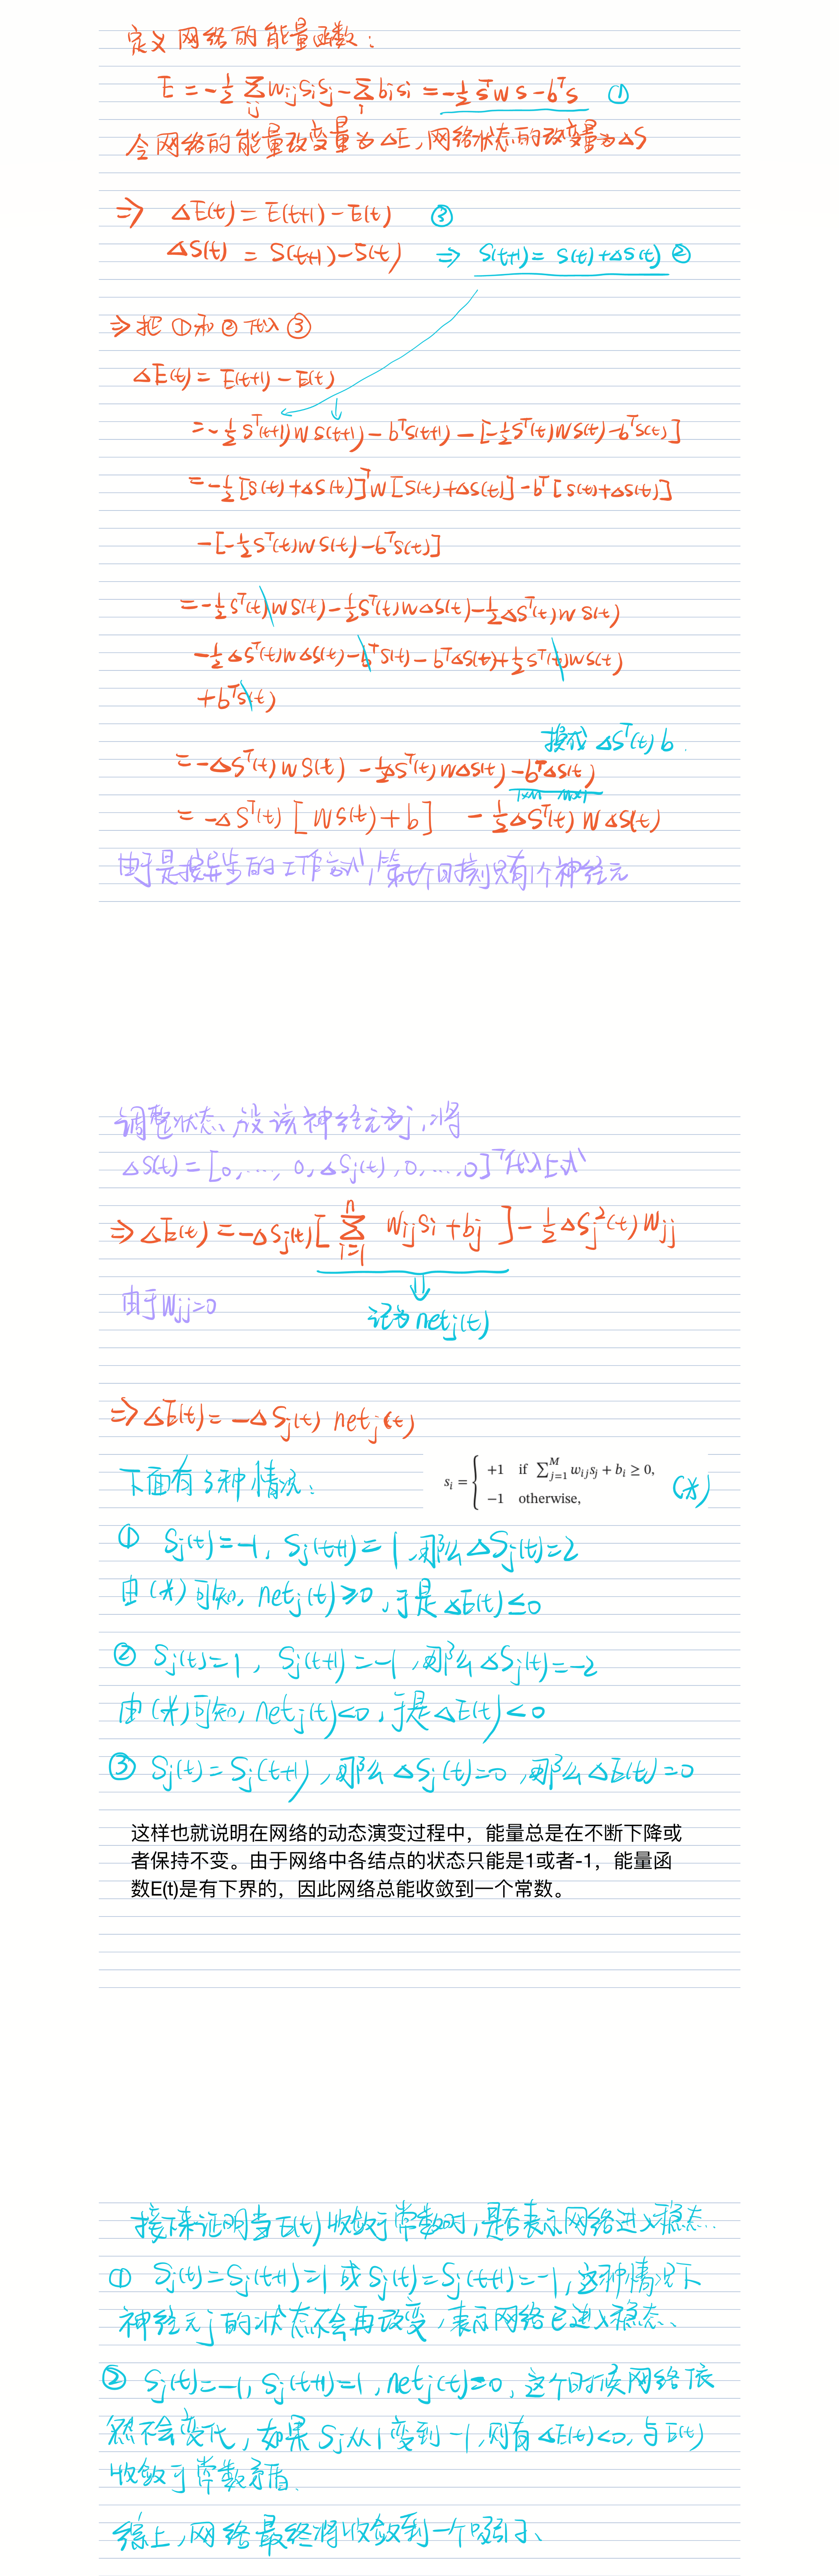 定义网络的能量函数：
E = -½ ∑ij wij si sj - ∑i bi si = -½ sᵀws - bᵀs ①
令网络的能量改变量为ΔE，网络状态的改变量为ΔS
⇒ ΔE(t) = E(t+1) - E(t) ③
ΔS(t) = S(t+1) - S(t) ⇒ S(t+1) = S(t) + ΔS(t) ②
⇒ 把①和②代入③
ΔE(t) = E(t+1) - E(t)
= -½ Sᵀ(t+1) W S(t+1) - bᵀS(t+1) - [-½ Sᵀ(t) W S(t) - bᵀS(t)]
= -½ [S(t) + ΔS(t)]ᵀ W [S(t) + ΔS(t)] - bᵀ [S(t) + ΔS(t)]
- [-½ Sᵀ(t) W S(t) - bᵀS(t)]
= -½ Sᵀ(t) W S(t) - ½ Sᵀ(t) W ΔS(t) - ½ ΔSᵀ(t) W S(t)
-½ ΔSᵀ(t) W ΔS(t) - bᵀS(t) - bᵀΔS(t) + ½ Sᵀ(t) W S(t)
+ bᵀS(t)
换成 ΔSᵀ(t) b.
= -ΔSᵀ(t) W S(t) - ½ ΔSᵀ(t) W ΔS(t) - bᵀΔS(t)
1×n n×1
= -ΔSᵀ(t) [W S(t) + b] - ½ ΔSᵀ(t) W ΔS(t)
由于是按异步的工作方式，第t个时刻只有1个神经元
调整状态、设该神经元为j，将
ΔS(t) = [0, ..., 0, ΔSj(t), 0, ..., 0]ᵀ代入上式
⇒ ΔE(t) = -ΔSj(t) [∑ⁿi=1 Wij Si + bj] - ½ ΔSj²(t) Wjj
由于Wjj=0
记为 netj(t)
⇒ ΔE(t) = -ΔSj(t) netj(t)
下面有3种情况：
si = { +1 if ∑ᴹj=1 wij sj + bi ≥ 0, (*)
-1 otherwise,
① Sj(t) = -1, Sj(t+1) = 1, 那么 ΔSj(t) = 2
由(*)可知, netj(t) ≥ 0, 于是 ΔE(t) ≤ 0
② Sj(t) = 1, Sj(t+1) = -1, 那么 ΔSj(t) = -2
由(*)可知, netj(t) < 0, 于是 ΔE(t) < 0
③ Sj(t) = Sj(t+1), 那么 ΔSj(t) = 0, 那么 ΔE(t) = 0
这样也就说明在网络的动态演变过程中，能量总是在不断下降或
者保持不变。由于网络中各结点的状态只能是1或者-1，能量函
数E(t)是有下界的，因此网络总能收敛到一个常数。
接下来证明当E(t)收敛于常数时，是否表示网络进入稳态.
① Sj(t) = Sj(t+1) = 1 或 Sj(t) = Sj(t+1) = -1, 这种情况下
神经元j的状态不会再改变，表示网络已进入稳态、
② Sj(t) = -1, Sj(t+1) = 1, netj(t) = 0, 这个时候网络依
然不会变化，如果 Sj从1变到-1, 则有 ΔE(t) < 0, 与E(t)
收敛于常数矛盾.
综上，网络最终将收敛到一个吸引子、